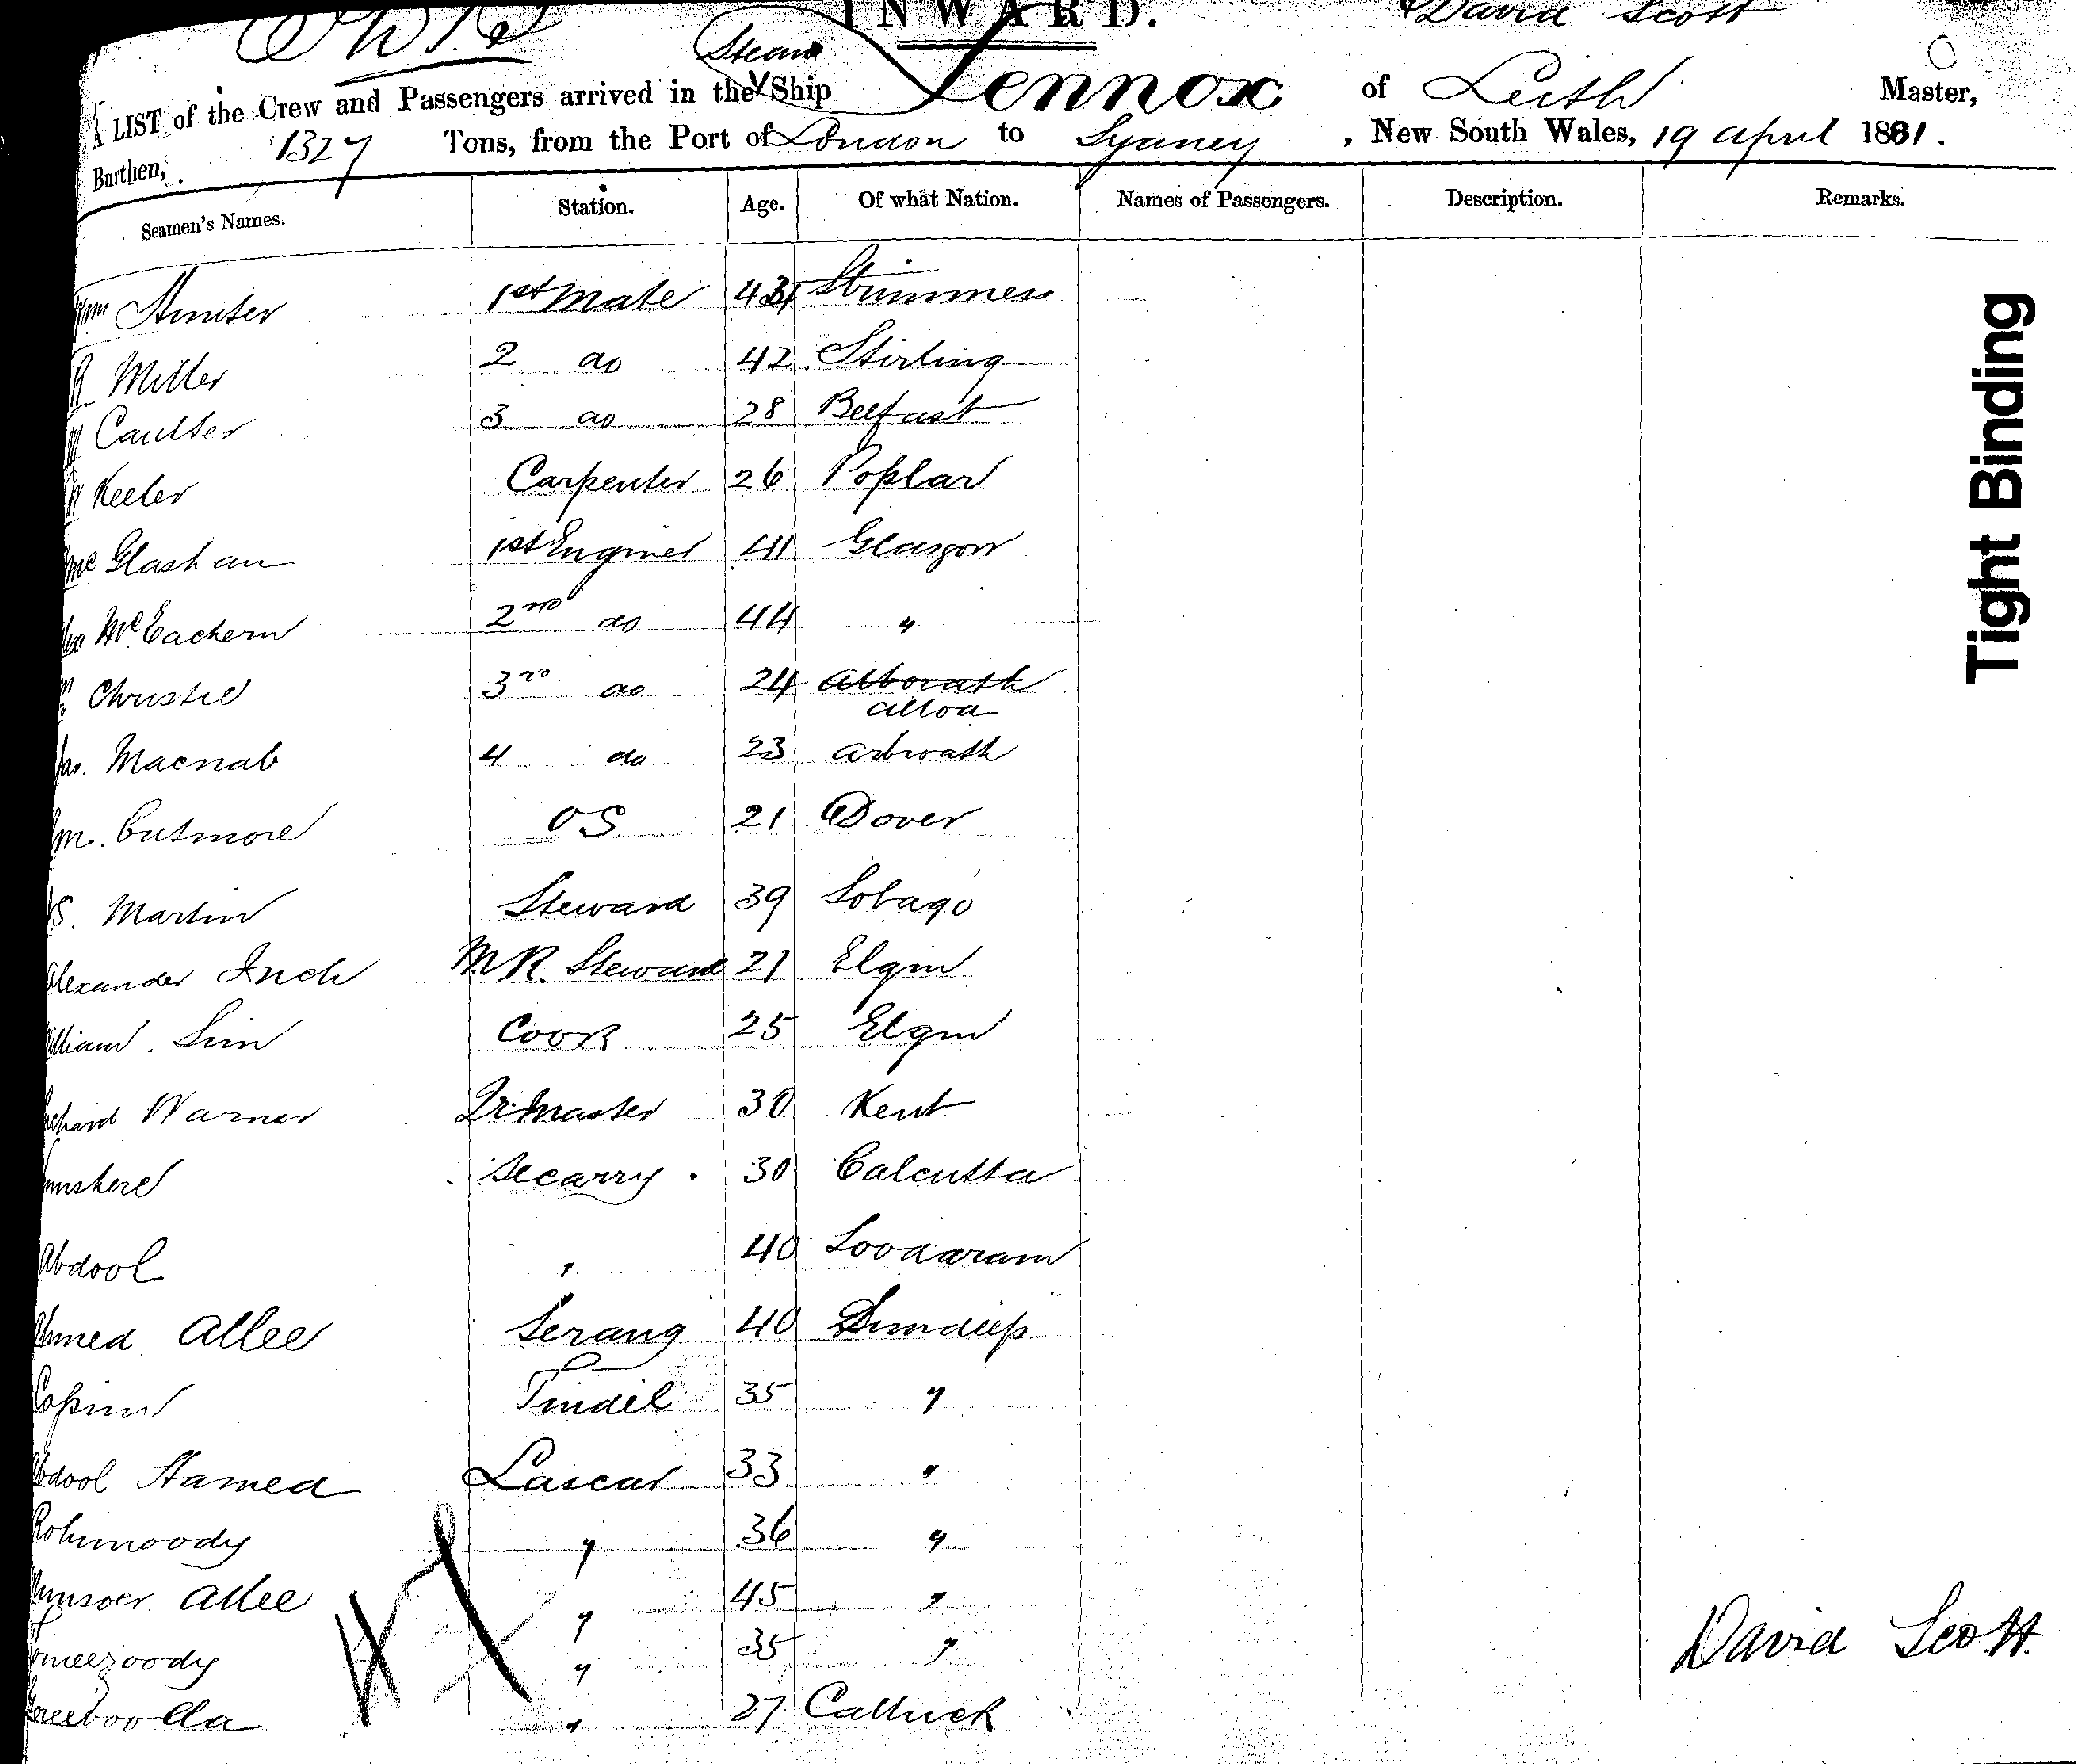 INWARD.
David Scott
A LIST of the Crew and Passengers arrived in the Steam Ship Lennox of Leith Master,
Burthen, 1327 Tons, from the Port of London to Sydney, New South Wales, 19 April 1881.
Seamen's Names. Station. Age. Of what Nation. Names of Passengers. Description. Remarks.
Wm Hunter 1st Mate 43
R Miller 2 do 42 Stirling
Caulter 3 do 28 Belfast
Keeler Carpenter 26 Poplar
McGlashan 1st Engineer 41 Glasgow
McEachern 2nd do 44 "
Christie 3rd do 24 Alloa
Jas. Macnab 4 do 23 Arbroath
Wm. Cutmore OS 21 Dover
S. Martin Steward 39 Tobago
Alexander Inch M R. Steward 21 Elgin
William Sim Cook 25 Elgin
Richard Warner Qr Master 30 Kent
Secarry 30 Calcutta
Abdool " 40 Soodaram
Ahmed Allee Serang 40 Sundeep
Tindel 35 "
Abdool Hamed Lascar 33 "
Rohimoody " 36 "
Munsoer Allee " 45 "
" 35 "
" 27
David Scott.
Tight Binding